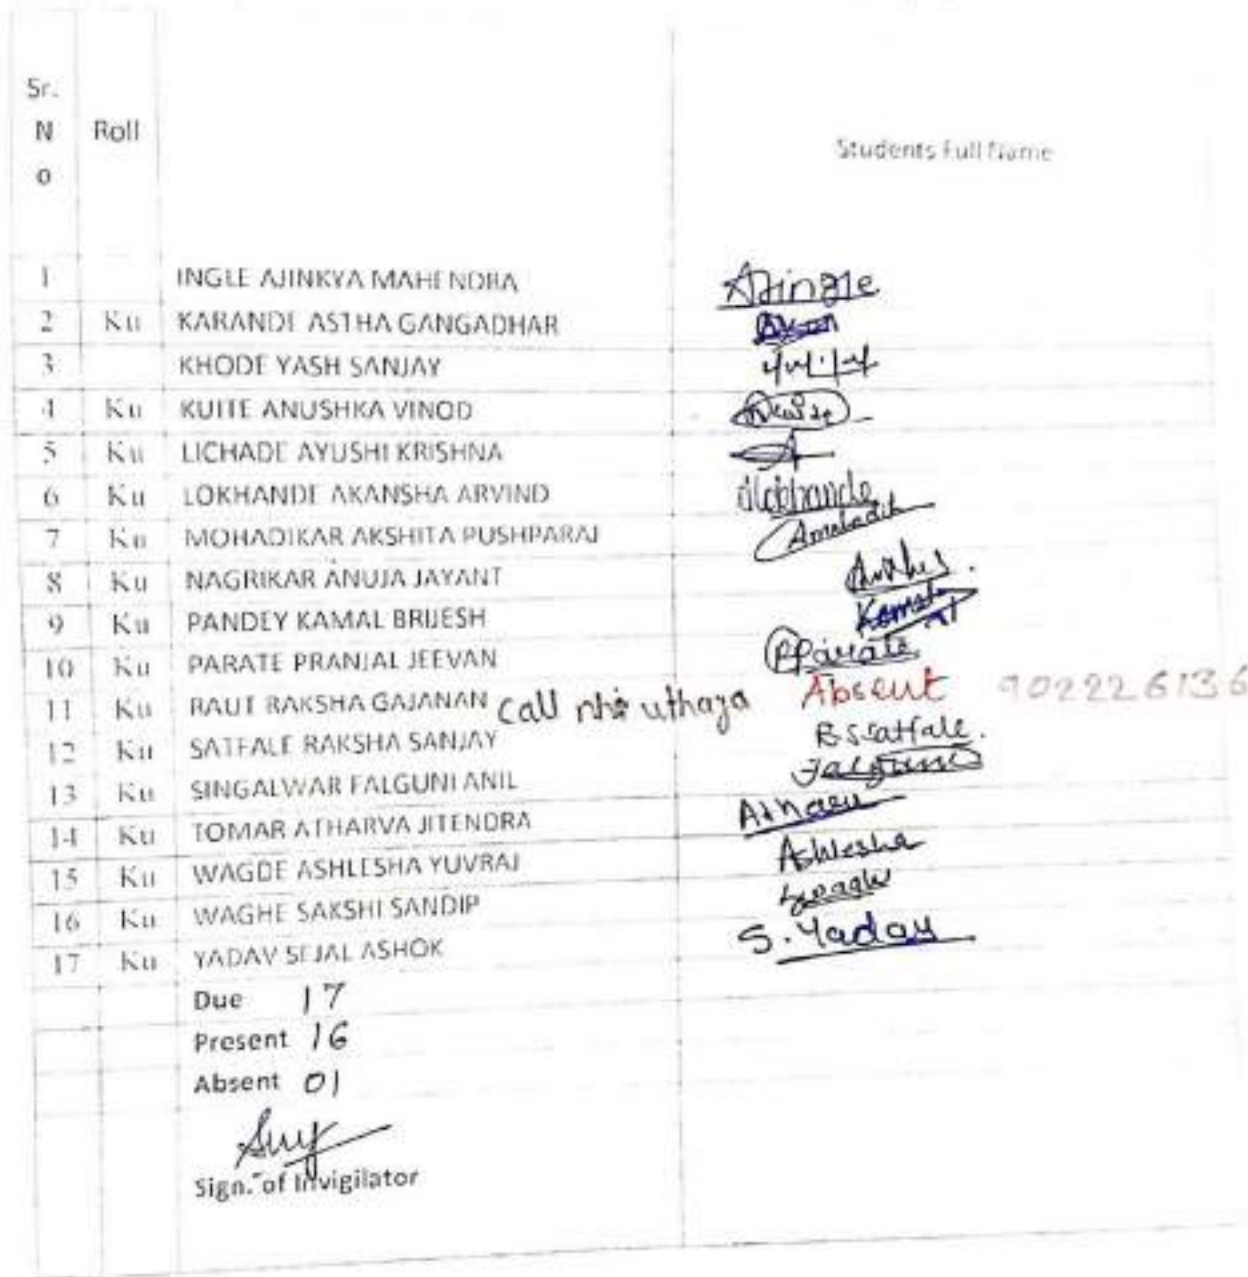 Sr.
N Roll
o
Students Full Name
1 INGLE AJINKYA MAHENDRA AJingle
2 Ku KARANDE ASTHA GANGADHAR
3 KHODE YASH SANJAY
4 Ku KUITE ANUSHKA VINOD
5 Ku LICHADE AYUSHI KRISHNA
6 Ku LOKHANDE AKANSHA ARVIND alokhande
7 Ku MOHADIKAR AKSHITA PUSHPARAJ
8 Ku NAGRIKAR ANUJA JAYANT
9 Ku PANDEY KAMAL BRIJESH Kamal
10 Ku PARATE PRANJAL JEEVAN PParate
11 Ku RAUT RAKSHA GAJANAN call nhi uthaya Absent 902226136
12 Ku SATFALE RAKSHA SANJAY RSSatfale.
13 Ku SINGALWAR FALGUNI ANIL Falguni
14 Ku TOMAR ATHARVA JITENDRA
15 Ku WAGDE ASHLESHA YUVRAJ Ashlesha
16 Ku WAGHE SAKSHI SANDIP
17 Ku YADAV SEJAL ASHOK S. Yadav
Due 17
Present 16
Absent 01
Sign. of Invigilator